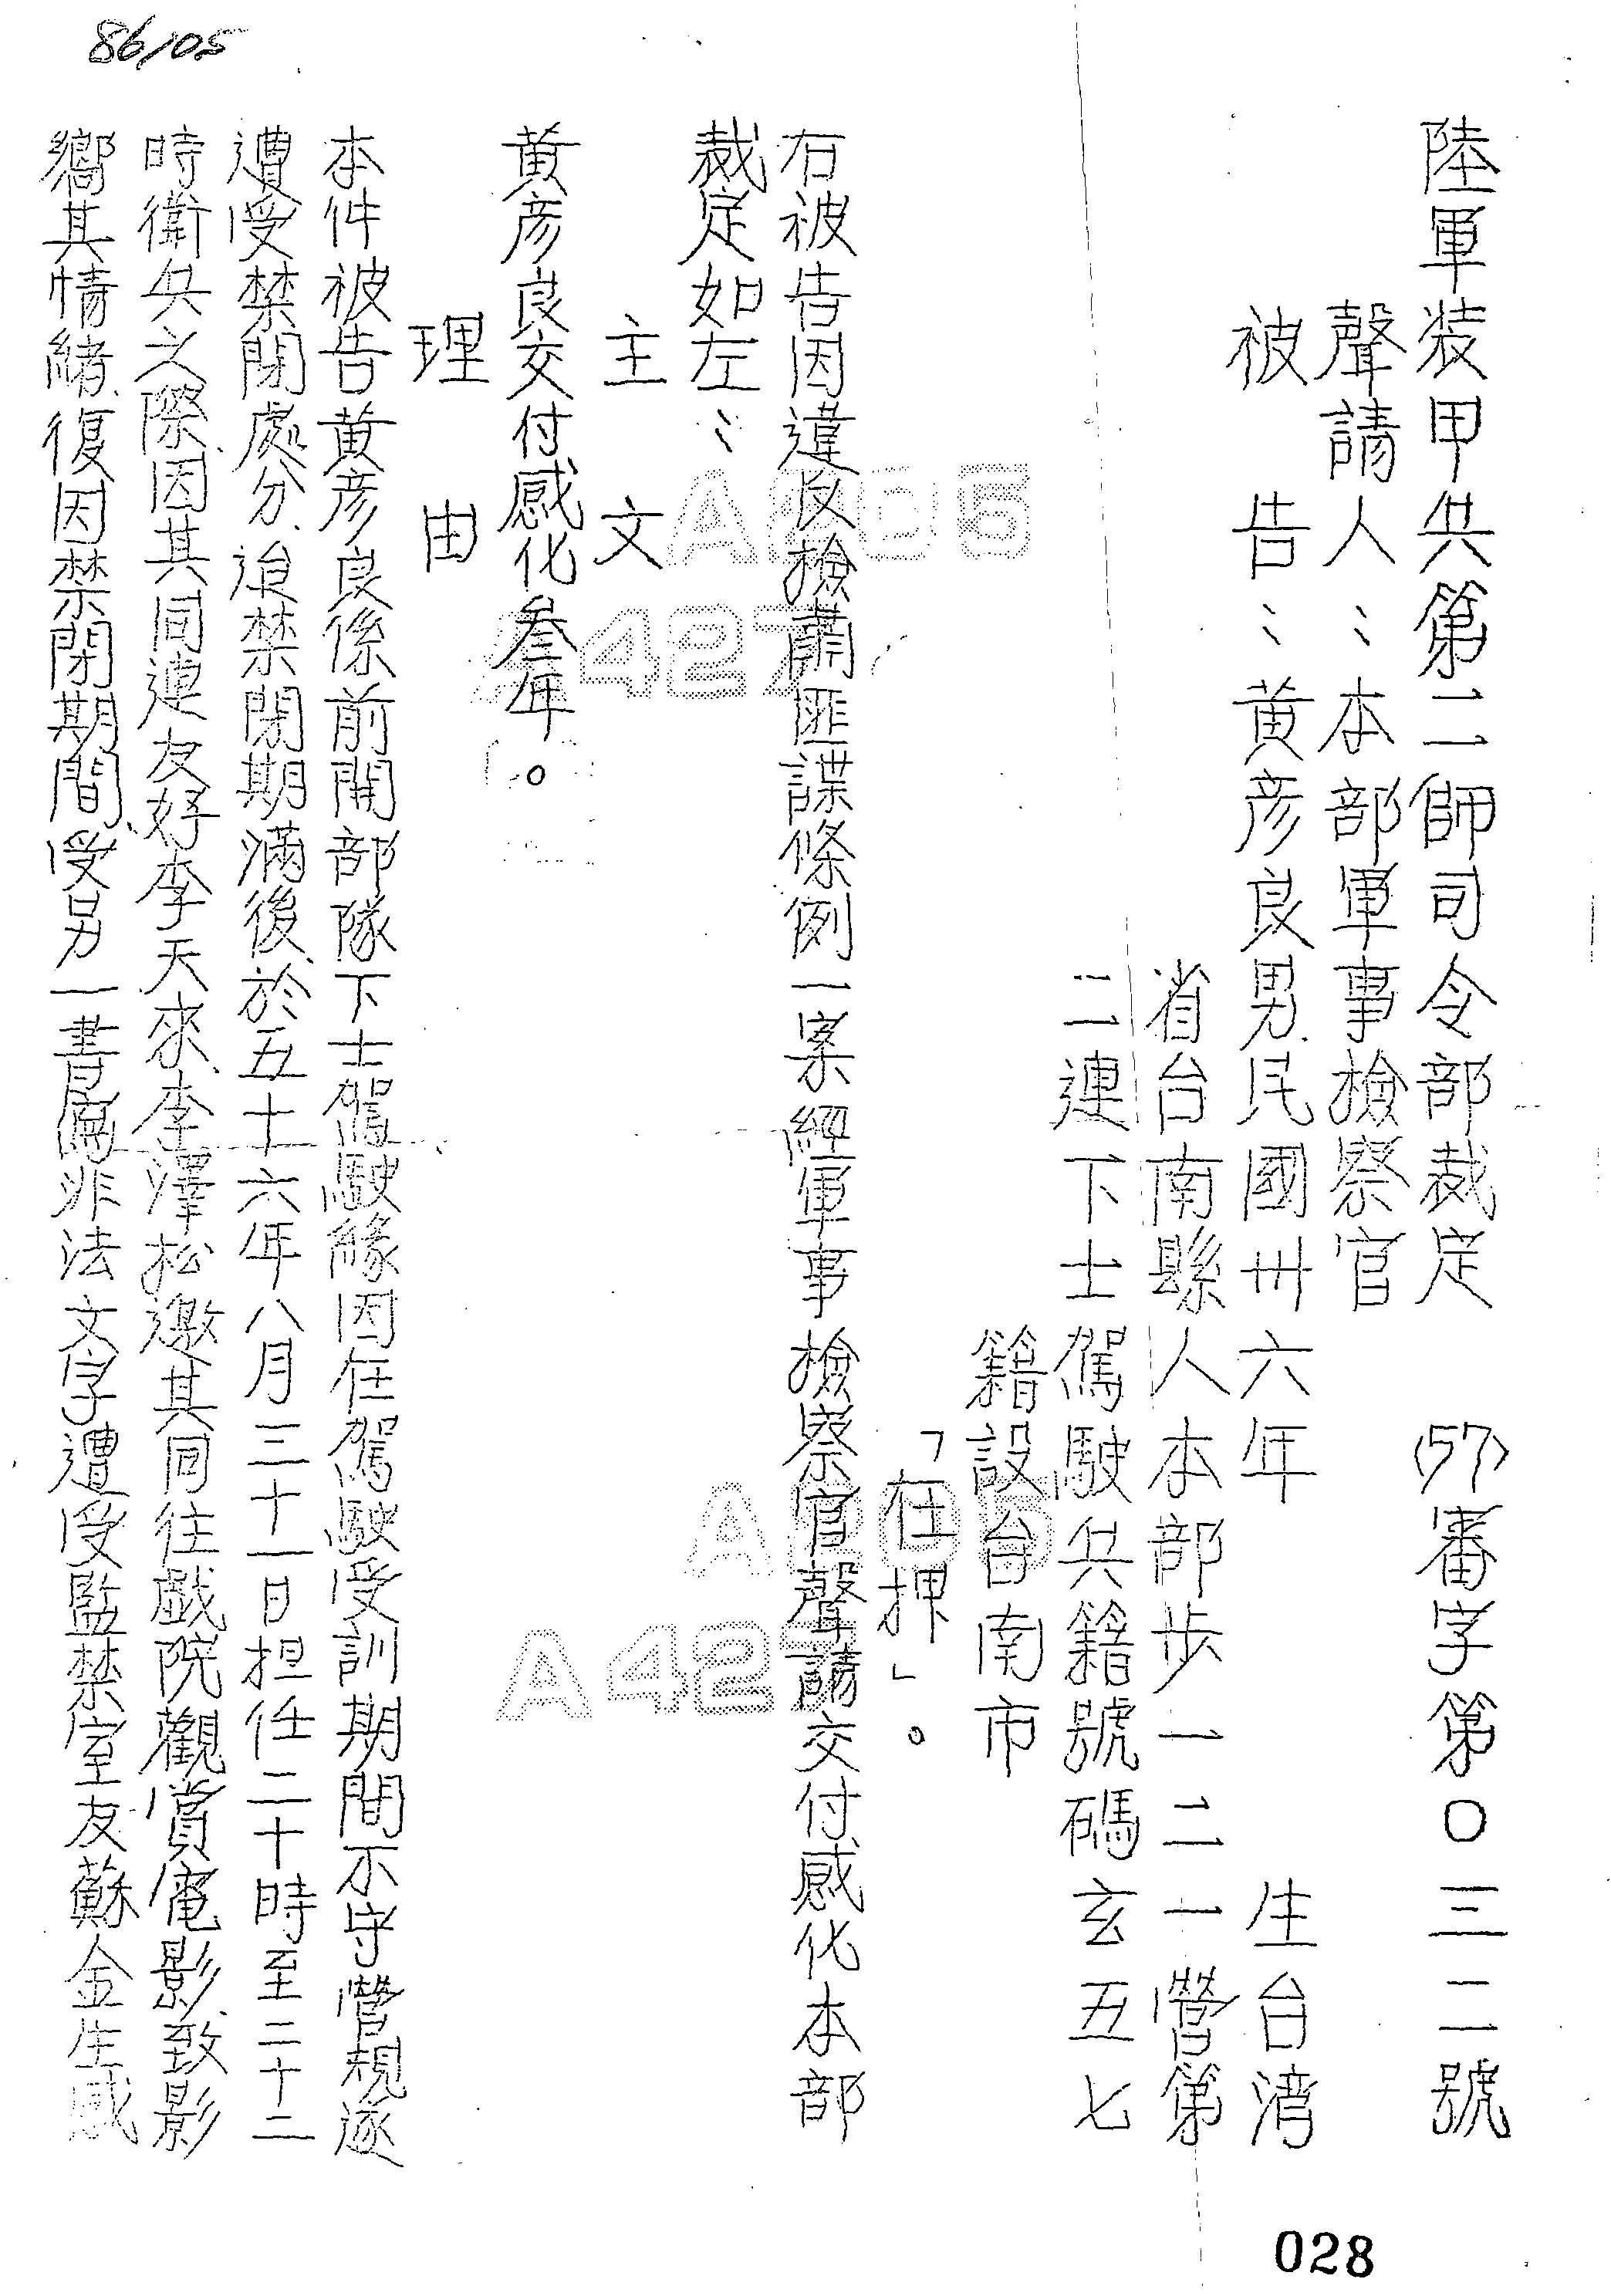 86105
陸軍装甲兵第二師司令部裁定 (57)審字第○三二號
聲請人：本部軍事檢察官
被告：黄彥良男、民國卅六年 生台湾
省台南縣人本部步一二一營第
二連下士駕駛兵籍號碼玄五七
籍設台南市
「在押」。
右被告因違反檢肅匪諜條例一案經軍事檢察官聲請交付感化本部
裁定如左：
主文
黄彥良交付感化叁年。
理由
本件被告黄彥良係前開部隊下士駕駛緣因在駕駛受訓期間不守營規逐
遭受禁閉處分、迨禁閉期滿後、於五十六年八月三十一日担任二十時至二十二
時衛兵之際、因其同連友好李天來、李澤松邀其同往戲院觀賞電影、致影
嚮其情緒、復因禁閉期間、受另一書寫非法文字遭受監禁室友蘇金生感
A205
A427
A205
A427
028